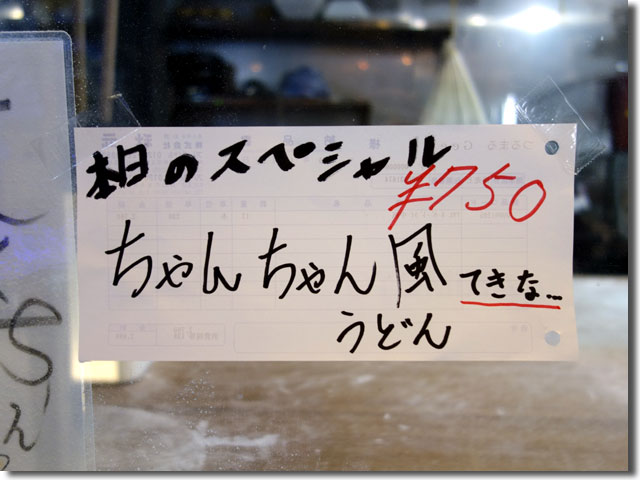 本日のスペシャル
¥750
ちゃんちゃん風 てきな…
うどん